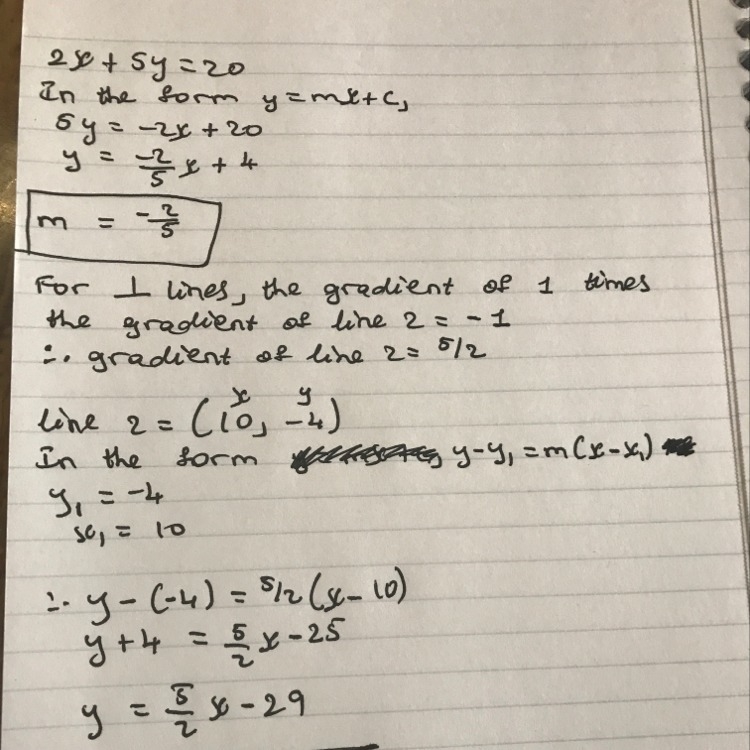 2x + 5y = 20
In the form y = mx + c,
5y = -2x + 20
y = -2/5 x + 4
m = -2/5
For ⊥ lines, the gradient of 1 times
the gradient of line 2 = -1
∴ gradient of line 2 = 5/2
x y
line 2 = (10, -4)
In the form y - y₁ = m(x - x₁)
y₁ = -4
x₁ = 10
∴ y - (-4) = 5/2 (x - 10)
y + 4 = 5/2 x - 25
y = 5/2 x - 29